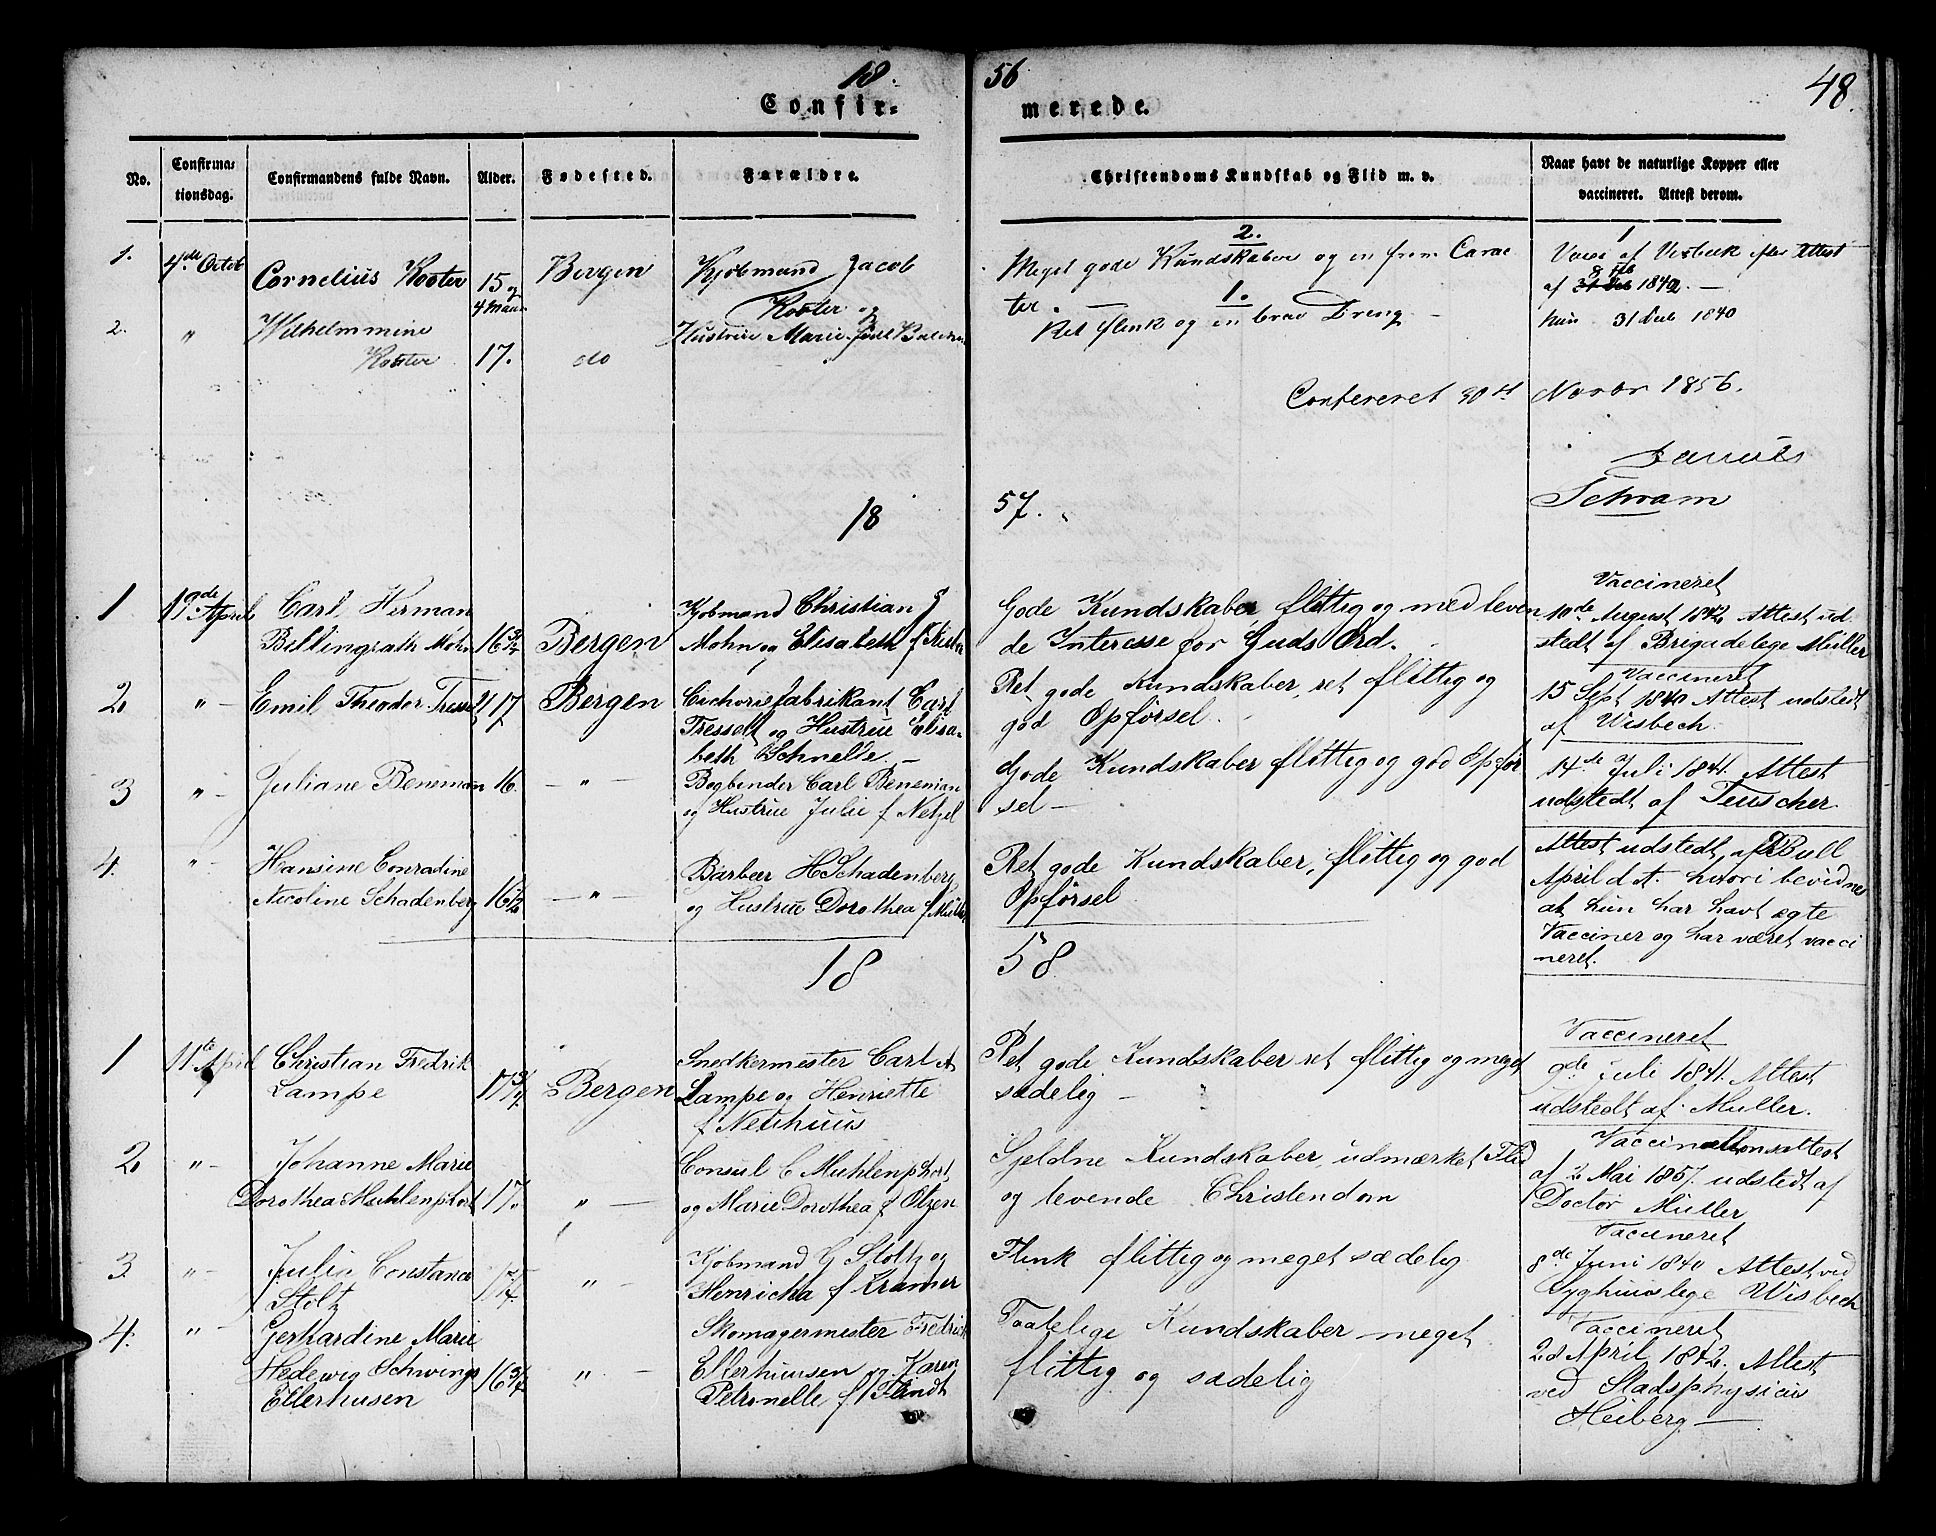 18
56
48.
Confir-
merede.
No.
Confirma-
tionsdag.
Confirmandens fulde Navn.
Alder.
Fødested.
Forældre.
Christendoms Kundskab og Flid m. v.
Naar havt de naturlige Kopper eller
vaccineret. Attest derom.
1. 4de Octob Cornelius Koster 15 og
4 Maan
Bergen
Kjøbmand Jacob
Koster og
Hustrue Marie
2.
Meget gode Kundskaber og en from Carac
ter.
1.
Ret flink og en brav Dreng
1
Vacc af Visbeck efter Attest
af 1842.
hun 31 Decb 1840
2. " Wilhelmmine
Koster 17. do
Confereret 30te Novbr 1856.
Schram
18
57.
1 19de April Carl Herman
Billingrath Mohn 16 3/4 Bergen
Kjøbmand Christian J
Mohn og Elisabeth f
Gode Kundskaber, flittig og med leven
de Interesse for Guds Ord.
Vaccineret
10de August 1842 Attest ud
stedt af Brigadelege Müller
2 " Emil Theodor Tresselt 17 Bergen
Cichoriefabrikant Carl
Tresselt og Hustrue Elisa-
beth Schnelle.
Ret gode Kundskaber, ret flittig og
god Opførsel.
Vaccineret
15 Sept 1840 Attest udstedt
af Wisbech.
3 " Juliane Beneman 16. "
Bogbinder Carl Beneman
og Hustrue Julie f Netzel
Gode Kundskaber flittig og god Opfør
sel
14de Juli 1841. Attest
udstedt af Teuscher
4. " Hansine Conradine
Nicoline Schadenberg 16 1/2 "
Barbeer H Schadenberg,
og Hustrue Dorothea f Müller
Ret gode Kundskaber, flittig og god
Opførsel
Attest udstedt af Bull
April d A. hvori bevidnes
at hun har havt ægte
Vacciner og har været vacci
neret.
18
58
1 11te April Christian Fredrik
Lampe 17 3/4 Bergen
Snedkermester Carl A
Lampe og Henriette
f Neuhuus
Ret gode Kundskaber ret flittig og meget
sædelig
Vaccineret
9de Juli 1841. Attest
udstedt af Muller.
2 " Johanne Marie
Dorothea Muhlenphort 17. "
Consul C Muhlenphort,
og Marie Dorothea f Olzen
Gjeldne Kundskaber, udmærket Flid
og levende Christendom
Vaccinationsattest
af 2 Mai 1857. udstedt af
Doctor Müller
3 " Julia Constance
Stoltz "
Kjøbmand G Stoltz og
Henricka f Kramer
Flink flittig og meget sædelig
Vaccineret
8de Juni 1840 Attest ved
Syghuuslege Wisbech
4. " Gerhardine Marie
Hedewig Schwings
Ellerhusen 16 3/4 "
Skomagermester Fredrik
Ellerhuusen og Karen
Petronelle f Flindt
Taalelige Kundskaber meget
flittig og sædelig
Vaccineret
28 April 1842. Attest
ved Stadsphysicus
Heiberg